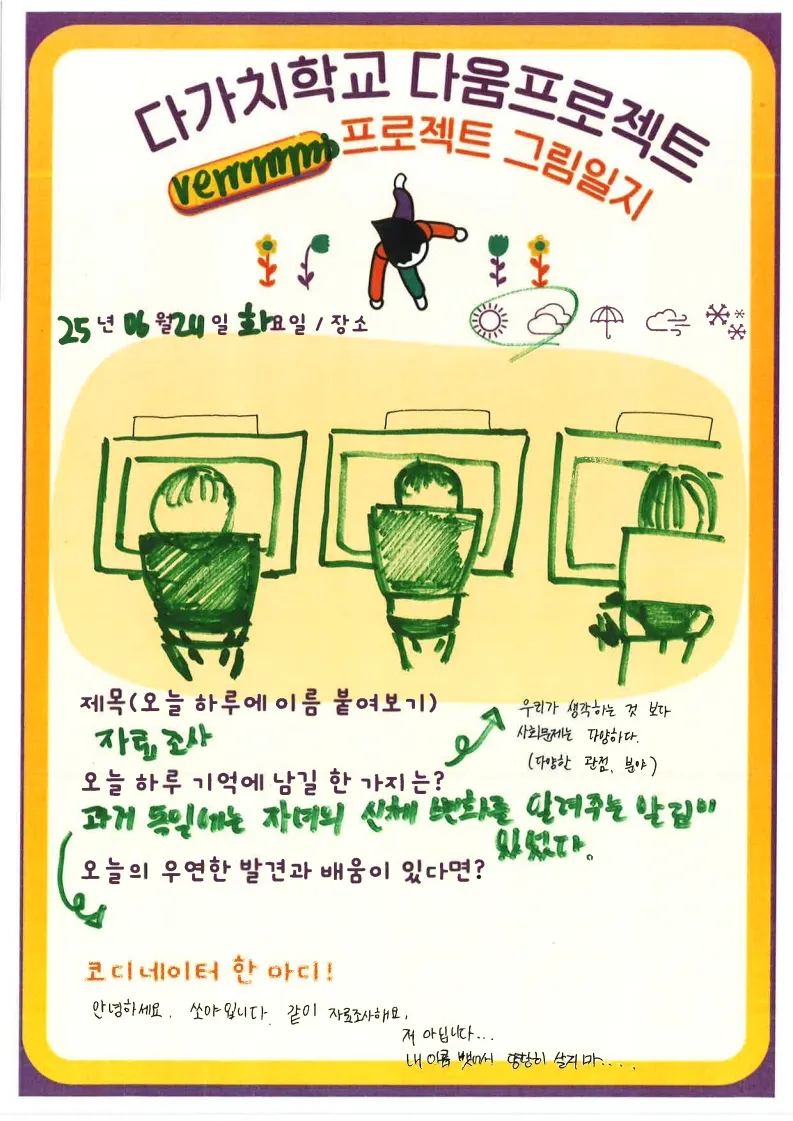 다가치학교 다움프로젝트
프로젝트 그림일기
25년 06월 24일 화요일 / 장소
제목(오늘 하루에 이름 붙여보기)
자료조사
우리가 생각하는 것 보다
사회문제는 다양하다.
(다양한 관점, 분야)
오늘 하루 기억에 남길 한 가지는?
과거 독일에는 자녀의 신체 변화를 알려주는 알림이
있었다.
오늘의 우연한 발견과 배움이 있다면?
코디네이터 한 마디!
안녕하세요. 쏘야입니다. 같이 자료조사해요.
저 아닙니다...
내 이름 뺏어서